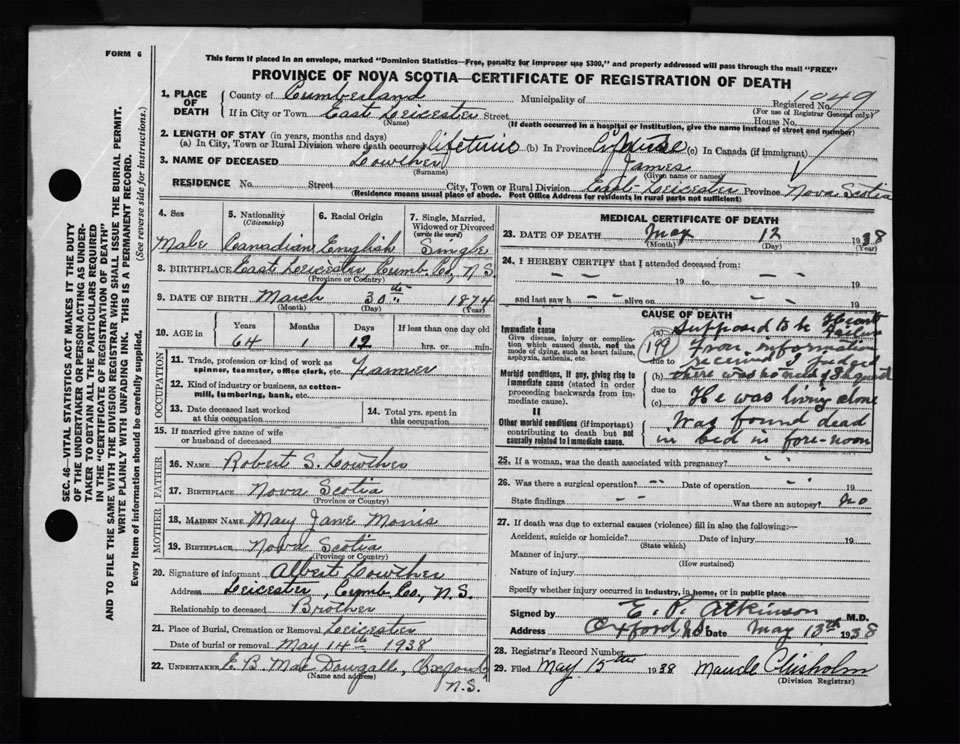 FORM 6
This form if placed in an envelope, marked "Dominion Statistics—Free, penalty for improper use $300," and properly addressed will pass through the mail "FREE"
PROVINCE OF NOVA SCOTIA—CERTIFICATE OF REGISTRATION OF DEATH
SEC. 46—VITAL STATISTICS ACT MAKES IT THE DUTY
OF THE UNDERTAKER OR PERSON ACTING AS UNDER-
TAKER TO OBTAIN ALL THE PARTICULARS REQUIRED
IN THE "CERTIFICATE OF REGISTRATION OF DEATH"
AND TO FILE THE SAME WITH THE DIVISION REGISTRAR WHO SHALL ISSUE THE BURIAL PERMIT.
WRITE PLAINLY WITH UNFADING INK. THIS IS A PERMANENT RECORD.
Every item of information should be carefully supplied. (See reverse side for instructions.)
1. PLACE OF DEATH County of Cumberland Municipality of Registered No. 1049
(For use of Registrar General only)
If in City or Town East Leicester Street House No.
(Name) (If death occurred in a hospital or institution, give the name instead of street and number)
2. LENGTH OF STAY (in years, months and days)
(a) In City, Town or Rural Division where death occurred lifetime (b) In Province (c) In Canada (if immigrant)
3. NAME OF DECEASED Lowther James
(Surname) (Given name or names)
RESIDENCE No. Street City, Town or Rural Division East Leicester Province Nova Scotia
(Residence means usual place of abode. Post Office Address for residents in rural parts not sufficient)
4. Sex Male
5. Nationality (Citizenship) Canadian
6. Racial Origin English
7. Single, Married, Widowed or Divorced (write the word) Single
8. BIRTHPLACE East Leicester, Cumb. Co, N.S.
(Province or Country)
9. DATE OF BIRTH March 30th 1874
(Month) (Day) (Year)
10. AGE in Years Months Days If less than one day old
64 1 12 hrs. or min.
OCCUPATION
11. Trade, profession or kind of work as spinner, teamster, office clerk, etc. Farmer
12. Kind of industry or business, as cotton-mill, lumbering, bank, etc.
13. Date deceased last worked at this occupation
14. Total yrs. spent in this occupation
15. If married give name of wife or husband of deceased
FATHER
16. NAME Robert S. Lowther
17. BIRTHPLACE Nova Scotia
(Province or Country)
MOTHER
18. MAIDEN NAME May Jane Morris
19. BIRTHPLACE Nova Scotia
(Province or Country)
20. Signature of informant Albert Lowther
Address Leicester, Cumb. Co, N.S.
Relationship to deceased Brother
21. Place of Burial, Cremation or Removal Leicester
Date of burial or removal May 14th 1938
22. UNDERTAKER E. B. MacDougall, Oxford, N.S.
(Name and address)
MEDICAL CERTIFICATE OF DEATH
23. DATE OF DEATH May 12 1938
(Month) (Day) (Year)
24. I HEREBY CERTIFY that I attended deceased from:
19 to 19
and last saw h alive on 19
CAUSE OF DEATH
I
Immediate cause
Give disease, injury or complication which caused death, not the mode of dying, such as heart failure, asphyxia, asthenia, etc.
(a) Supposed to be Heart Failure
199
due to From information received I judged
Morbid conditions, if any, giving rise to immediate cause (stated in order proceeding backwards from immediate cause).
(b) there was no need of Inquest
due to
(c) He was living alone
II
Other morbid conditions (if important) contributing to death but not causally related to immediate cause.
Was found dead
in bed in fore-noon
25. If a woman, was the death associated with pregnancy?
26. Was there a surgical operation? Date of operation 19
State findings Was there an autopsy? no
27. If death was due to external causes (violence) fill in also the following:—
Accident, suicide or homicide? Date of injury 19
(State which)
Manner of injury
(How sustained)
Nature of injury
Specify whether injury occurred in industry, in home, or in public place
Signed by E. P. Atkinson M.D.
Address Oxford NS Date May 13th 1938
28. Registrar's Record Number
29. Filed May 15th 1938 Maude Chisholm
(Division Registrar)